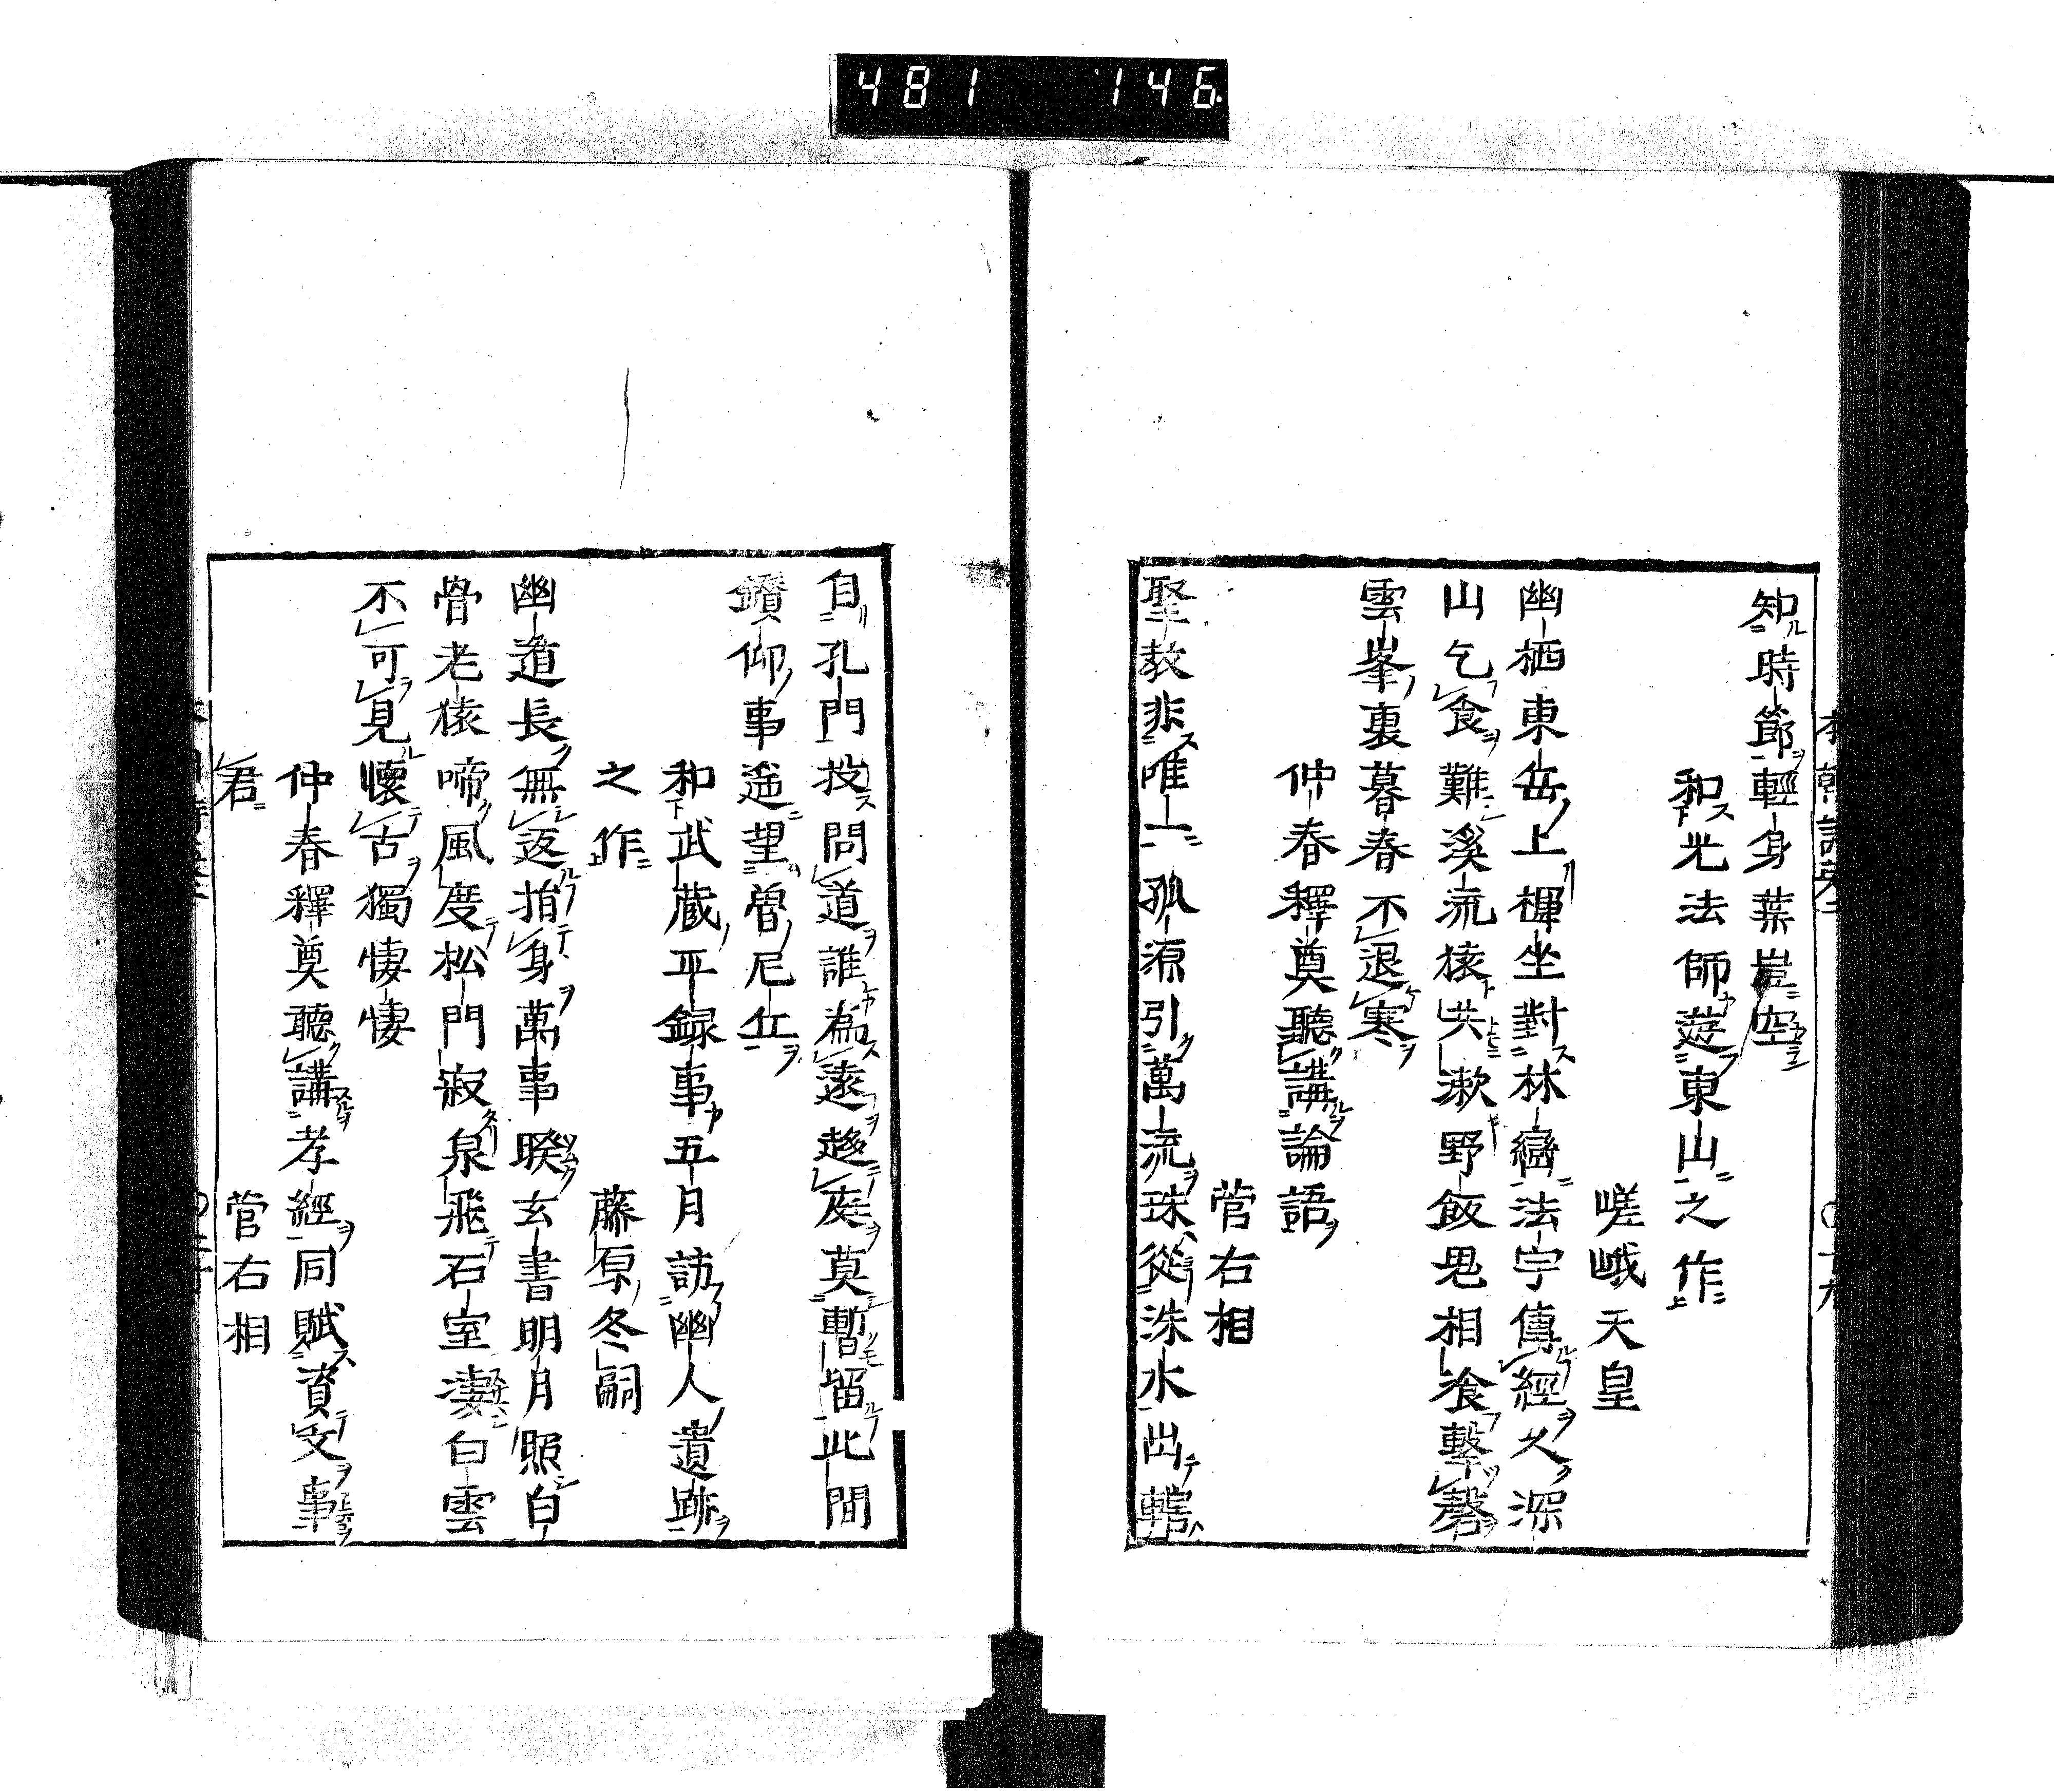 481 146
知時節輕身葉豈空
和光法師遊東山之作
嵯峨天皇
幽栖東岳上禪坐對林巒法宇傳經久深
山乞食難溪流猿共漱野飯鬼相飡擊磬
雲峯裏暮春不退寒
仲春釋奠聽講論語
菅右相
聖教非唯一孤源引萬流珠從洙水出轄
自孔門投問道誰為遠趍庭莫暫留此間
鑽仰事遥望魯尼丘
和武蔵平録事五月訪幽人遺跡
之作
藤原冬嗣
幽遁長無返指身萬事暌玄書明月照白
骨老猿啼風度松門寂泉飛石室凄白雲
不可見懐古獨悽悽
仲春釋奠聽講孝經同賦資父事
君
菅右相